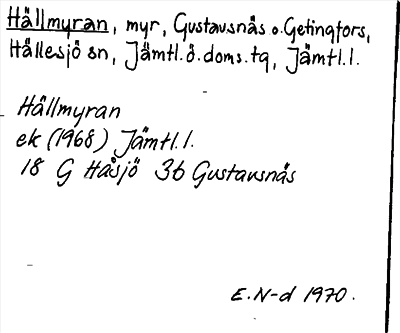 Hällmyran, myr, Gustavsnäs o. Getingfors,
Hällesjö sn, Jämtl.ö.doms.tg, Jämtl.l.
Hällmyran
ek (1968) Jämtl.l.
18 G Håsjö 3b Gustavsnäs
E.N-d 1970.